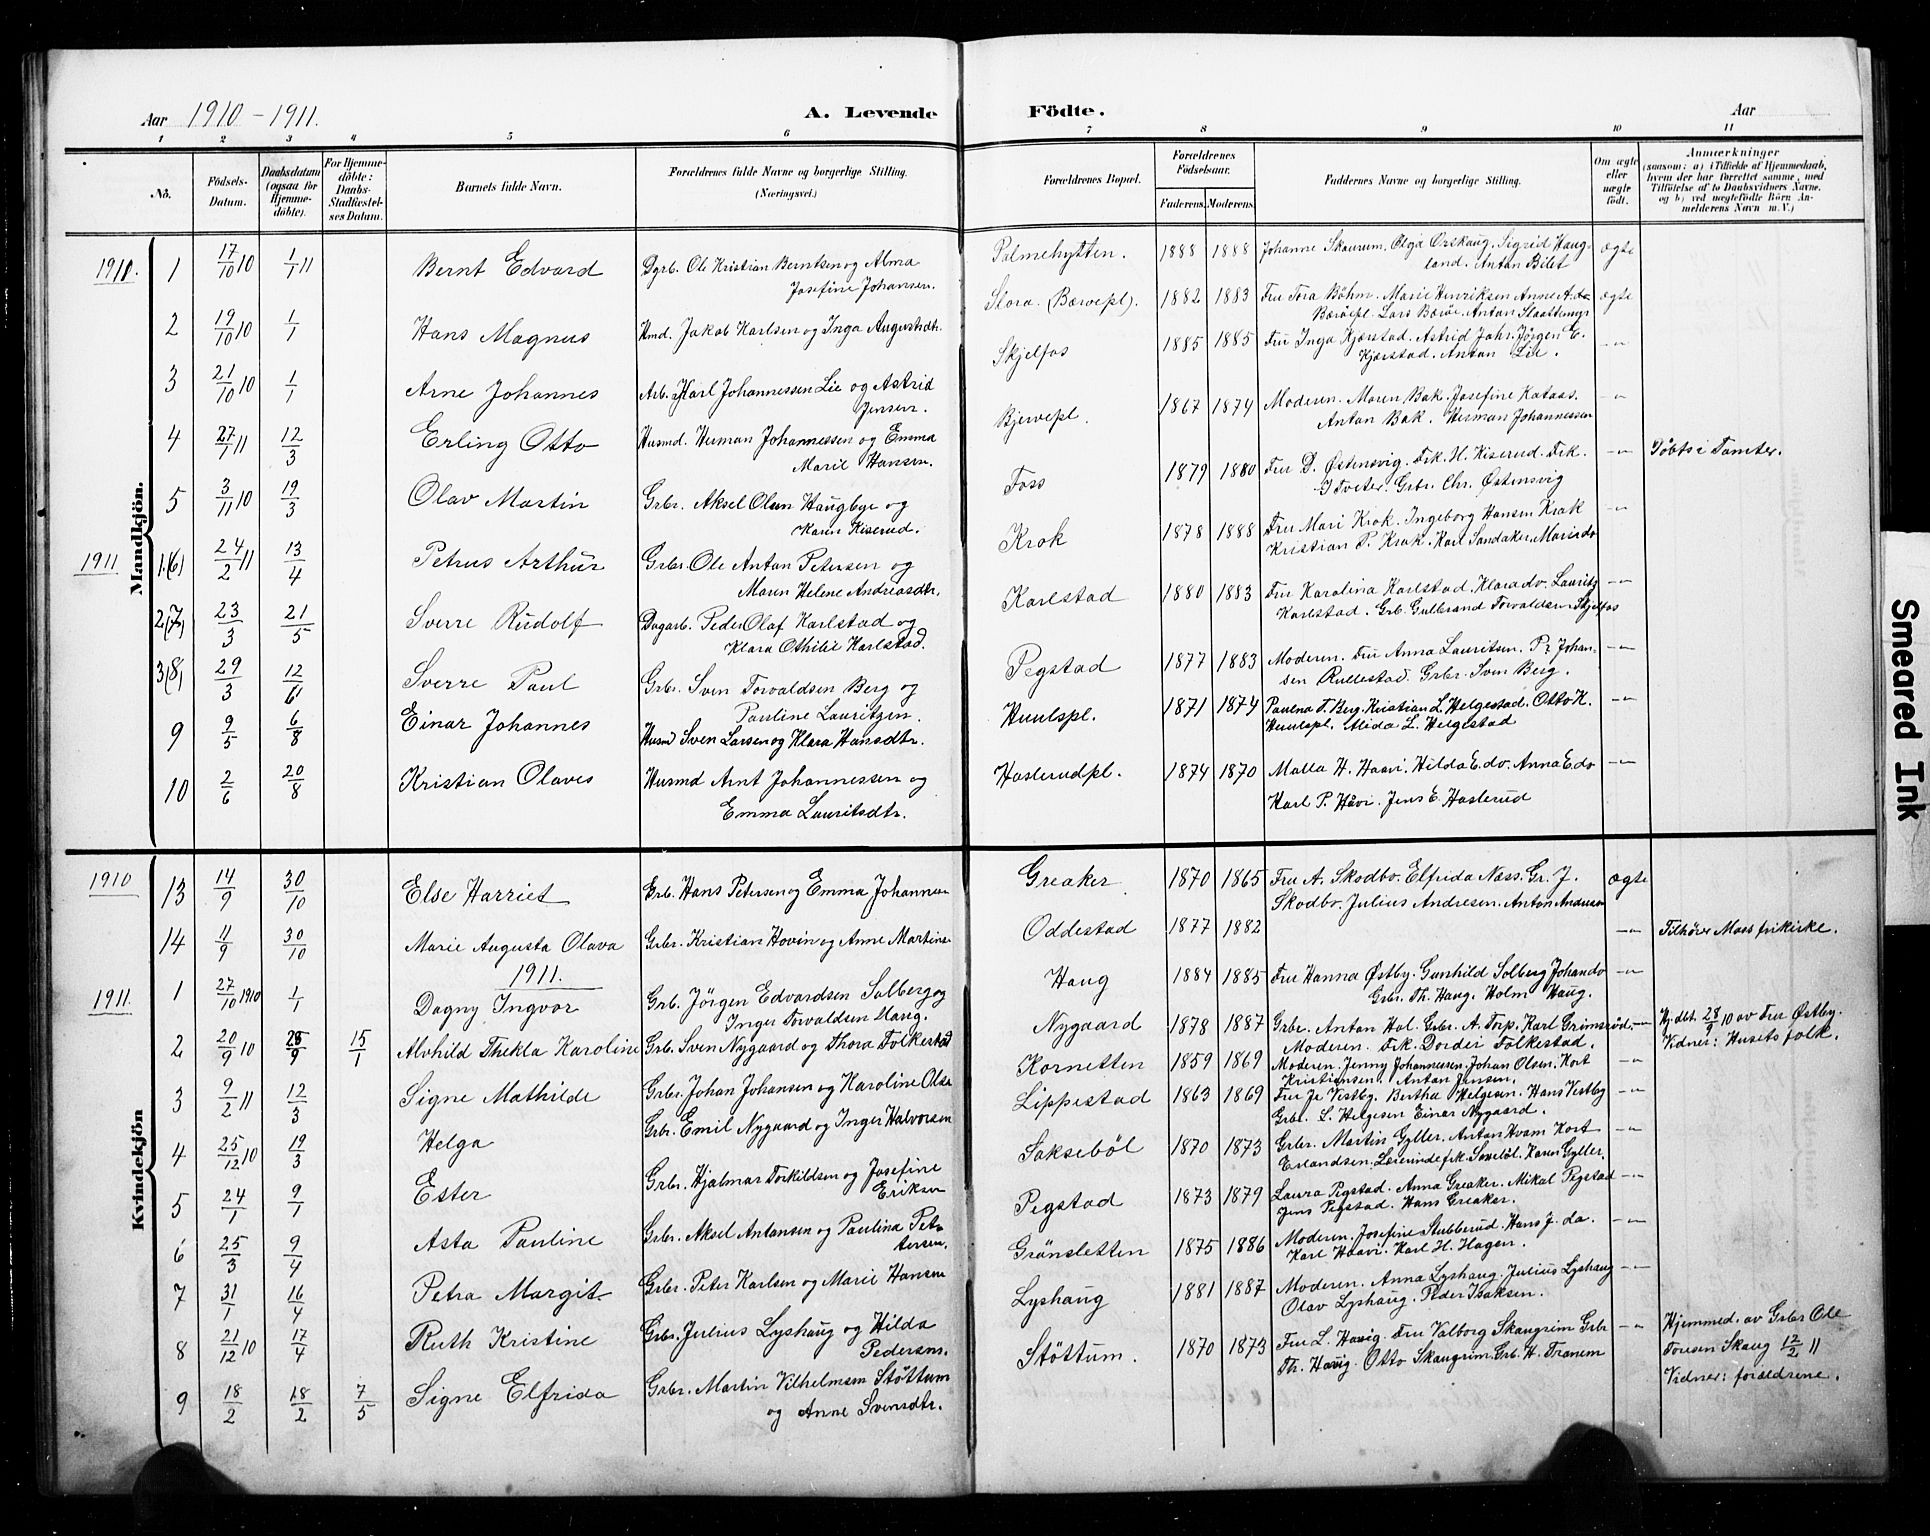 Aar 1910 - 1911.
A. Levende Födte.
Aar
1 2 3 4 5 6 7 8 9 10 11
No.
Födsels-Datum.
Daabsdatum (ogsaa for Hjemmedöbte).
For Hjemmedöbte: Daabs-Stadfæstelses Datum.
Barnets fulde Navn.
Forældrenes fulde Navne og borgerlige Stilling. (Næringsvei.)
Forældrenes Bopæl.
Forældrenes Födselsaar.
Faderens. Moderens.
Faddernes Navne og borgerlige Stilling.
Om ægte eller uægte födt.
Anmærkninger
(saasom: a) i Tilfælde af Hjemmedaab, hvem der har forrettet samme, med Tilföielse af to Daabsvidners Navne, og b) ved uægtefödte Börn Anmelderens Navn m. V.)
Mandkjön.
1910. 1 17/10 10 1/1 11 Bernt Edvard Dgrb. Ole Kristian Berntsen og Alma Josefine Johansen. Palmehytten. 1888 1888 Johanne Skaurum. Olga Ørskaug. Sigrid Haugland. Anton Bilet ægte
2 19/10 10 1/1 Hans Magnus Hmd. Jakob Karlsen og Inga Augustsdtr. Slora. (Bærøepl). 1882 1883 Fru Tora Böhm. Marie Henriksen Anne A. Bærøepl. Lars Bærøe. Anton ægte
3 21/10 10 1/1 Arne Johannes Arb. Karl Johannessen Lie og Astrid Jensen. Skjelfos 1885 1885 Fru Inga Kjærstad. Astrid Johs. Jörgen E. Kjærstad. Anton Lie. -"-
4 27/1 11 12/3 Erling Otto Husmd. Herman Johannessen og Emma Marie Hansen. Bjervepl. 1867 1874 Moderen. Maren Bak. Josefine Kataas. Anton Bak. Herman Johannessen -"-
5 3/11 10 19/3 Olav Martin Grbr. Aksel Olsen Haugbye og Karen Kiserud. Foss 1879 1880 Fru D. Østensvig. Frk. H. Kiserud. Frk. J Tveter. Grbr. Chr. Østensvig -"- Döbt i Tomter.
1911 1.(6) 24/2 11 13/4 Petrus Arthur Grbr. Ole Anton Petersen og Maren Helene Andreasdtr. Krok 1878 1888 Fru Mari Krok. Ingeborg Hansen Krok Kristian P. Krok. Karl Sandaker. -"-
2(7) 23/3 21/5 Sverre Rudolf Dagarb. Peder Olaf Karlstad og Klara Othilie Karlstad. Karlstad 1880 1883 Fru Karolina Karlstad. Klara do. Lauritz Karlstad. Grb. Gulbrand Torvaldsen Skjelfos -"-
3(8) 29/3 12/6 Sverre Paul Grbr. Sven Torvaldsen Berg og Pauline Lauritzen. Pegstad 1877 1883 Moderen. Fru Anna Lauritsen. P. Johansen Rullestad. Grbr. Sven Berg. -"-
9 9/5 6/8 Einar Johannes Husmd Sven Larsen og Klara Hansdtr. Huulspl. 1871 1874 Paulna T. Berg. Kristian L. Helgestad. Otto K. Huulspl. Alida L. Helgestad -"-
10 2/6 20/8 Kristian Olaves Husmd Arnt Johannessen og Emma Lauritsdtr. Haslerudpl. 1874 1870 Malla H. Haavi. Hilda E. do. Anna E. do Karl P. Håvi. Jens E. Haslerud -"-
Kvindekjön
1910 13 14/9 30/10 Else Harriet Grb. Hans Petersen og Emma Johannesen Greaker 1870 1865 Fru A. Skodbo. Elfrida Næss. Gr. J. Skodbo. Julius Andresen. Anton Andersen ægte
14 11/9 30/10 Marie Augusta Olava Grbr. Kristian Hovin og Anne Martine Oddestad 1877 1882 -"- Tilhører Moss frikirke.
1911.
1911. 1 27/10 1910 1/1 Dagny Ingvor Grb. Jörgen Edvardsen Solberg og Inger Torvaldsen Haug. Haug 1884 1885 Fru Hanna Østby. Gunhild Solberg Johan do Grbr. Th. Haug. Holm Haug. -"-
2 20/9 10 28/9 15/1 Alvhild Thekla Karoline Grb. Sven Nygaard og Thora Folkestad Nygaard 1878 1887 Grbr. Anton Hol. Grbr. A. Torp. Karl Grimsrød. Moderen. Frk. Dordei Folkestad. -"- Hj. döt. 28/9 10 av Fru Østby. Vidner: Husets folk.
3 9/2 11 12/3 Signe Mathilde Grbr. Johan Johansen og Karoline Olsen Kornetten 1859 1869 Moderen. Jenny Johannessen. Johan Olsen. Kort Kristiansen. Anton Jensen. -"-
4 25/12 10 19/3 Helga Grbr. Emil Nygaard og Inger Halvorsen Lippestad 1863 1869 Fru Je Vestby. Bertha Helgesen. Hans Vestby Grbr. L. Helgesen Einar Nygaard. -"-
5 24/1 9/1 Ester Grbr. Hjalmar Torkildsen og Josefine Eriksen Saksebøl 1870 1873 Grbr. Martin Gyller. Anton Hvam Kort Erlandsen. Karen Gyller. -"-
6 25/3 9/4 Asta Pauline Grbr. Aksel Antonsen og Paulina Pettersen. Pegstad 1873 1879 Laura Pegstad. Anna Greaker. Mikal Pegstad Jens Pegstad. Hans Greaker. -"-
7 31/1 16/4 Petra Margit Grbr. Peter Karlsen og Marie Hansen Grönsletten 1875 1886 Moderen. Josefine Stubberud. Hans J. do. Karl Haavi. Karl H. Hagen. -"-
8 21/12 10 17/4 Ruth Kristine Grbr. Julius Lyshaug og Hilda Pedersen. Lyshaug 1881 1887 Moderen. Anna Lyshaug. Julius Lyshaug Olav Lyshaug. Peder Isaksen. -"-
9 18/2 18/2 7/5 Signe Elfrida Grbr. Martin Vilhelmsen Stöttum og Anne Svensdtr. Stöttum. 1870 1873 Fru L. Haug. Fru Valborg Skaugrim Grbr Th. Haug. Otto Skaugrim. Grb. H. Tranem -"- Hjemmed. av Grbr. Ole Toresen Skaug 12/2 11 Vidner: forældrene.
Smeared Ink